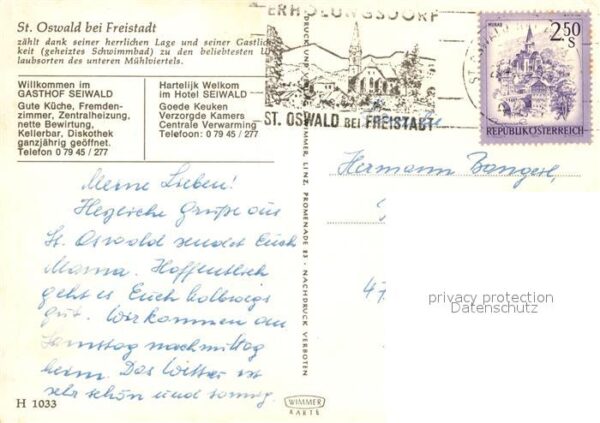 St. Oswald bei Freistadt
zählt dank seiner herrlichen Lage und seiner Gastlich-
keit (geheiztes Schwimmbad) zu den beliebtesten U
laubsorten des unteren Mühlviertels.
Willkommen im
GASTHOF SEIWALD
Gute Küche, Fremden-
zimmer, Zentralheizung,
nette Bewirtung,
Kellerbar, Diskothek
ganzjährig geöffnet.
Telefon 0 79 45 / 277
Hartelijk Welkom
im Hotel SEIWALD
Goede Keuken
Verzorgde Kamers
Centrale Verwarming
Telefoon: 0 79 45 / 277
Meine Lieben!
Herzliche Grüße aus
St. Oswald sendet Euch
Mama. Hoffentlich
geht es Euch halbwegs
gut. Wir kommen am
Samstag nachmittag
heim. Das Wetter ist
sehr schön und sonnig.
H 1033
WIMMER
KARTE
DRUCK UND VERLAG WIMMER, LINZ, PROMENADE 23 · NACHDRUCK VERBOTEN
ERHOLUNGSDORF
ST. OSWALD BEI FREISTADT
MURAU
2.50
S
REPUBLIK ÖSTERREICH
Hermann
47
privacy protection
Datenschutz